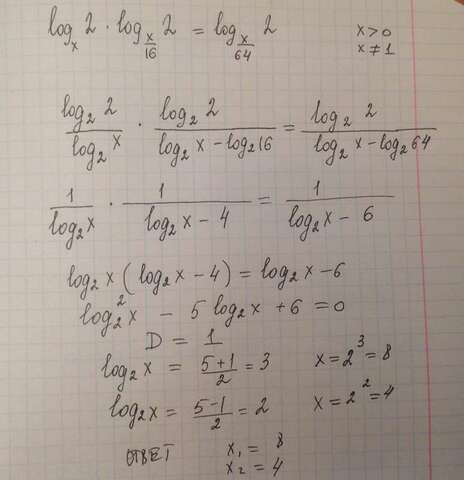 log_x 2 · log_{x/16} 2 = log_{x/64} 2    x>0
x≠1
\frac{log_2 2}{log_2 x} · \frac{log_2 2}{log_2 x - log_2 16} = \frac{log_2 2}{log_2 x - log_2 64}
\frac{1}{log_2 x} · \frac{1}{log_2 x - 4} = \frac{1}{log_2 x - 6}
log_2 x (log_2 x - 4) = log_2 x - 6
log_2^2 x - 5 log_2 x + 6 = 0
D = 1
log_2 x = \frac{5+1}{2} = 3    x = 2^3 = 8
log_2 x = \frac{5-1}{2} = 2    x = 2^2 = 4
ОТВЕТ    x_1 = 8
x_2 = 4